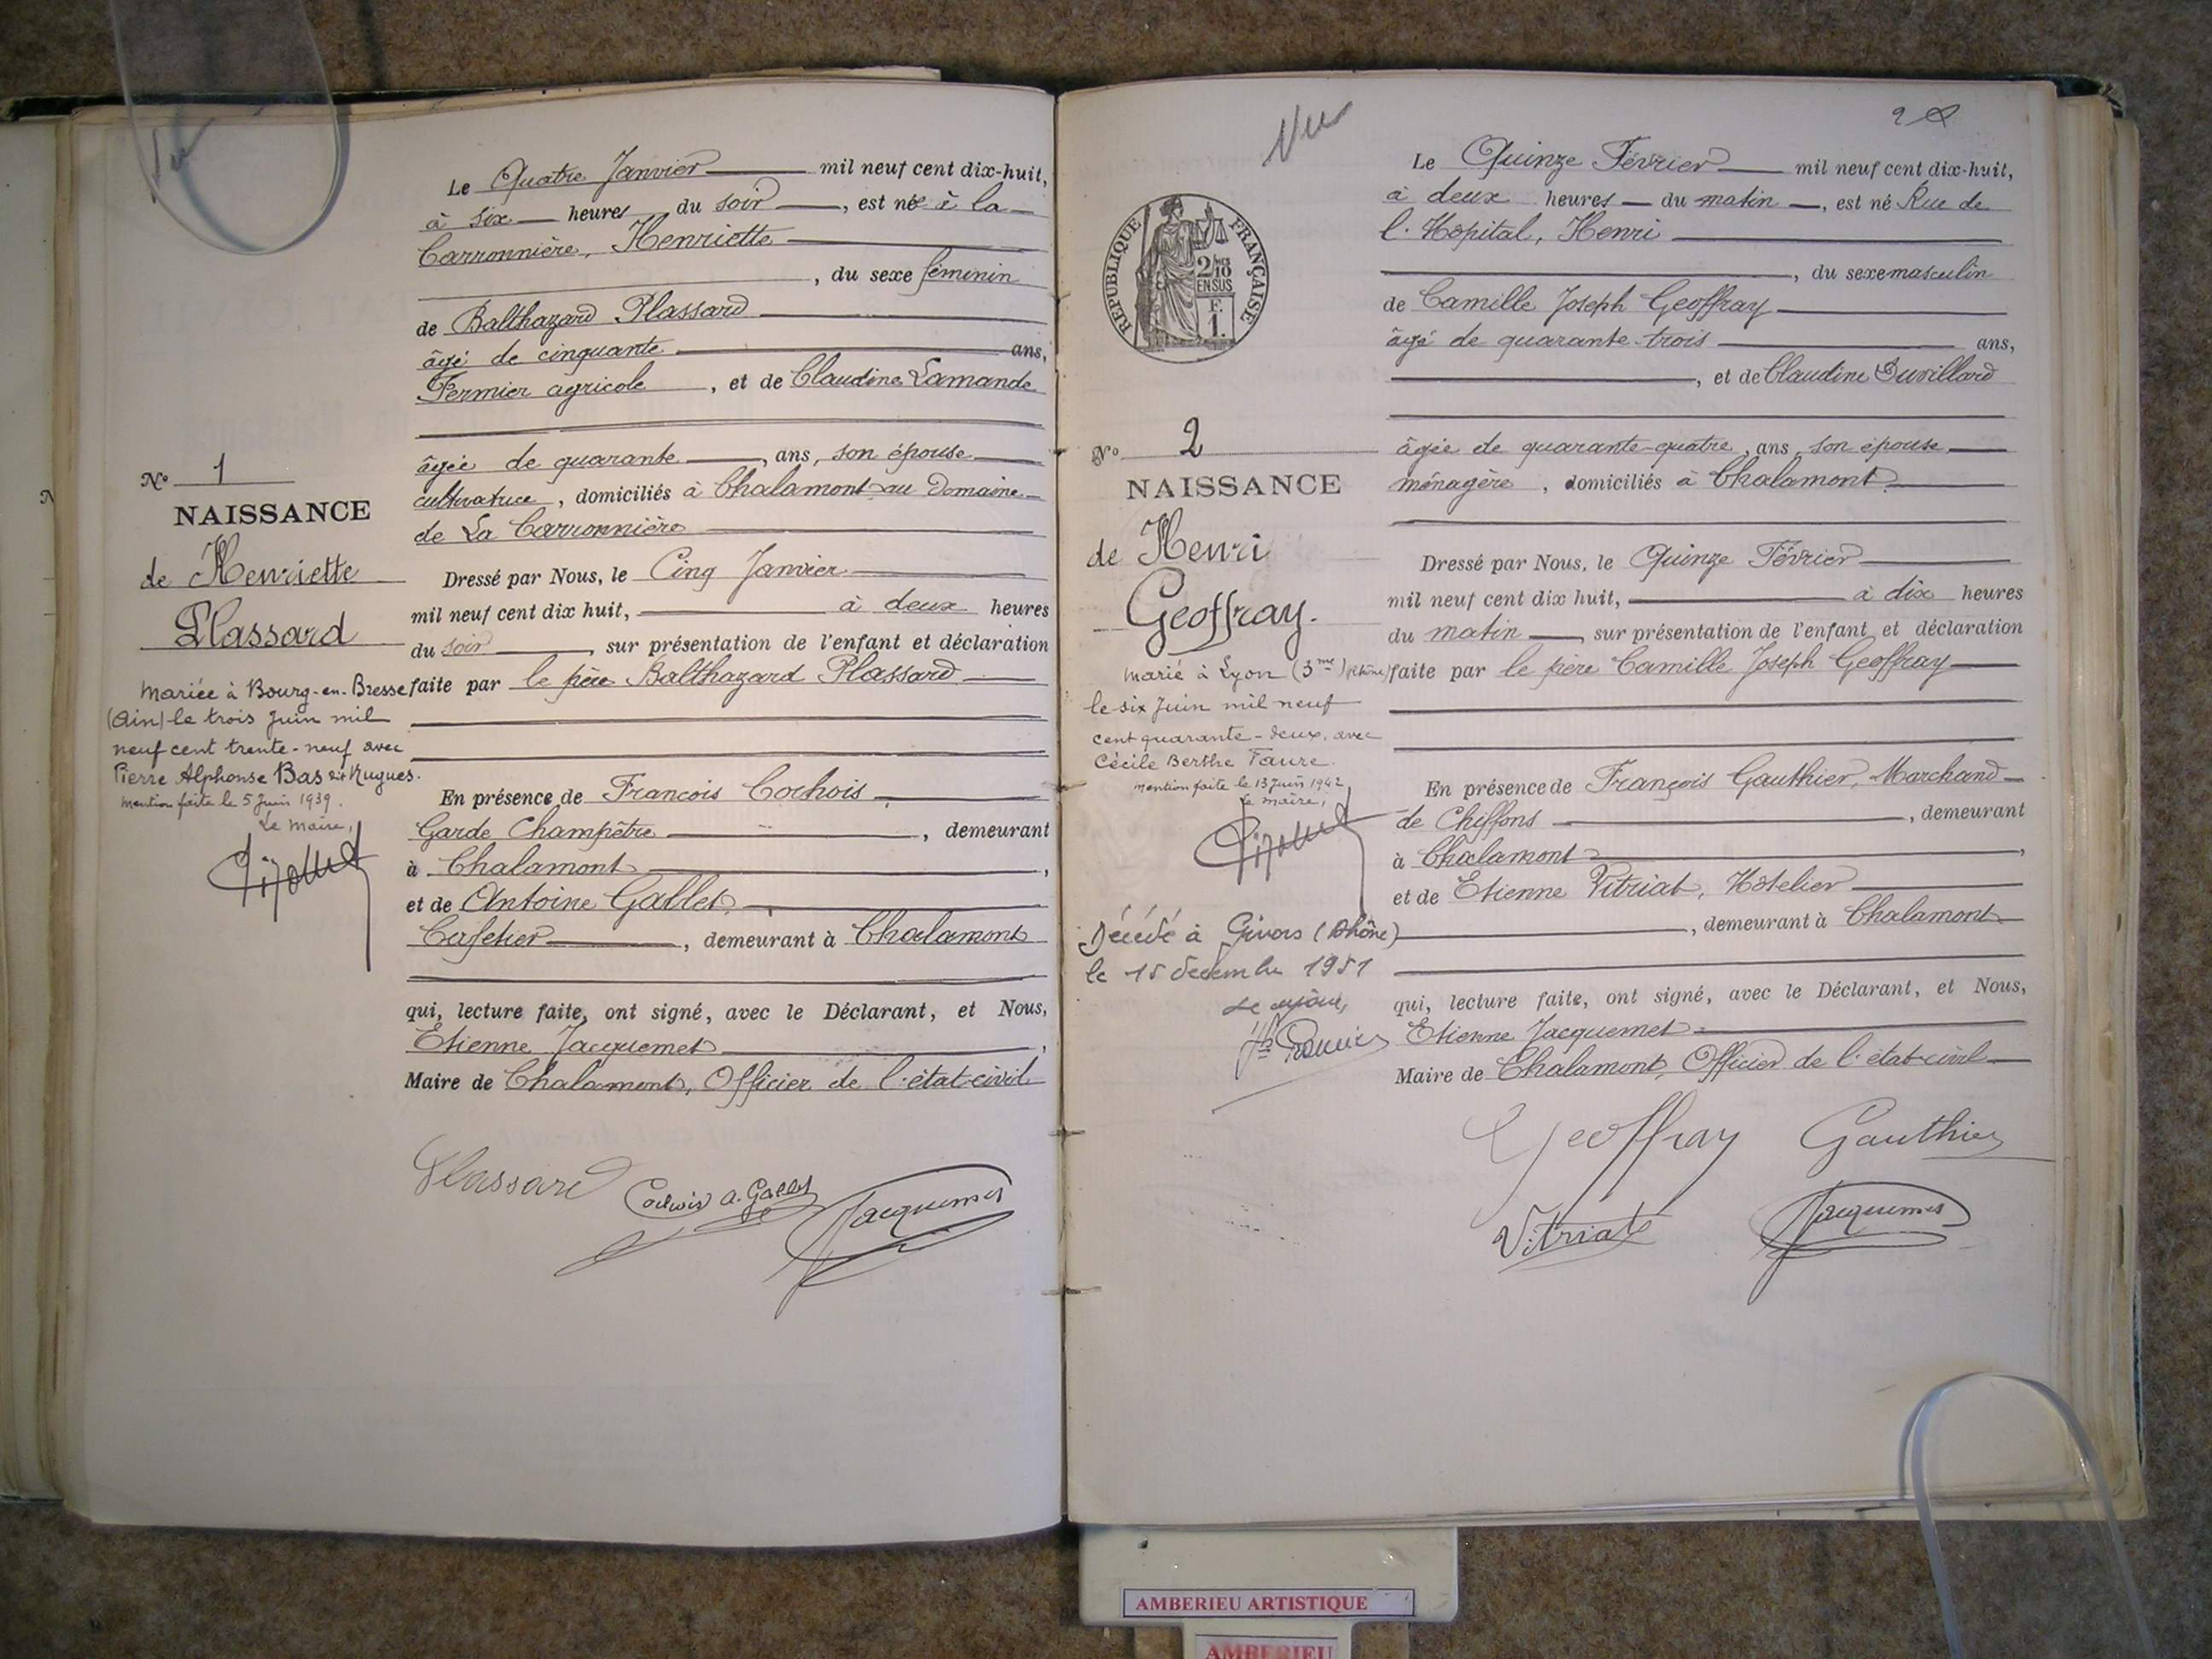 Nº 1
NAISSANCE
de Henriette
Plassard
Mariée à Bourg-en-Bresse
(Ain) le trois Juin mil
neuf cent trente-neuf avec
Pierre Alphonse Bas dit Hugues.
mention faite le 5 Juin 1939.
Le Maire,
Le Quatre Janvier mil neuf cent dix-huit,
à six heures du soir, est née à la
Carronnière, Henriette
, du sexe féminin
de Balthazard Plassard
âgé de cinquante ans,
Fermier agricole, et de Claudine Lamande
âgée de quarante, ans, son épouse
cultivatrice, domiciliés à Chalamont au Domaine
de La Carronnière
Dressé par Nous, le Cinq Janvier
mil neuf cent dix huit, à deux heures
du soir, sur présentation de l'enfant et déclaration
faite par le père Balthazard Plassard
En présence de François Cochois,
Garde Champêtre, demeurant
à Chalamont,
et de Antoine Gallet,
Cafetier, demeurant à Chalamont
qui, lecture faite, ont signé, avec le Déclarant, et Nous,
Etienne Jacquemet,
Maire de Chalamont, Officier de l'état-civil
Plassard Cochois A. Gallet Jacquemet
Vu
2
RÉPUBLIQUE FRANÇAISE
2/10
EN SUS
F.
1.
Nº 2
NAISSANCE
de Henri
Geoffray.
Marié à Lyon (3me) (Rhône)
le six Juin mil neuf
cent quarante-deux, avec
Cécile Berthe Faure.
mention faite le 13 Juin 1942
Le Maire,
Décédé à Givors (Rhône)
le 15 décembre 1951
Le Quinze Février mil neuf cent dix-huit,
à deux heures du matin, est né Rue de
l'Hôpital, Henri
, du sexe masculin
de Camille Joseph Geoffray
âgé de quarante-trois ans,
, et de Claudine Duvillard
âgée de quarante-quatre, ans, son épouse
ménagère, domiciliés à Chalamont
Dressé par Nous, le Quinze Février
mil neuf cent dix huit, à dix heures
du matin, sur présentation de l'enfant et déclaration
faite par le père Camille Joseph Geoffray
En présence de François Gauthier, Marchand
de Chiffons, demeurant
à Chalamont,
et de Etienne Vitriat, Hôtelier
, demeurant à Chalamont
qui, lecture faite, ont signé, avec le Déclarant, et Nous,
Etienne Jacquemet
Maire de Chalamont, Officier de l'état-civil
Geoffray Gauthier
Vitriat Jacquemet
AMBERIEU ARTISTIQUE
AMBERIEU